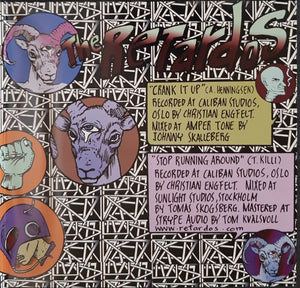 The RETARDOS
"CRANK IT UP" (A. HENNINGSEN)
RECORDED AT CALIBAN STUDIOS,
OSLO BY CHRISTIAN ENGFELT.
MIXED AT AMPER TONE BY
JOHNNY SKALLEBERG
"STOP RUNNING AROUND" (T. KILLI)
RECORDED AT CALIBAN STUDIOS, OSLO
BY CHRISTIAN ENGFELT. MIXED AT
SUNLIGHT STUDIOS, STOCKHOLM
BY TOMAS SKOGSBERG. MASTERED AT
STRYPE AUDIO BY TOM KVALSVOLL
www.retardos.com